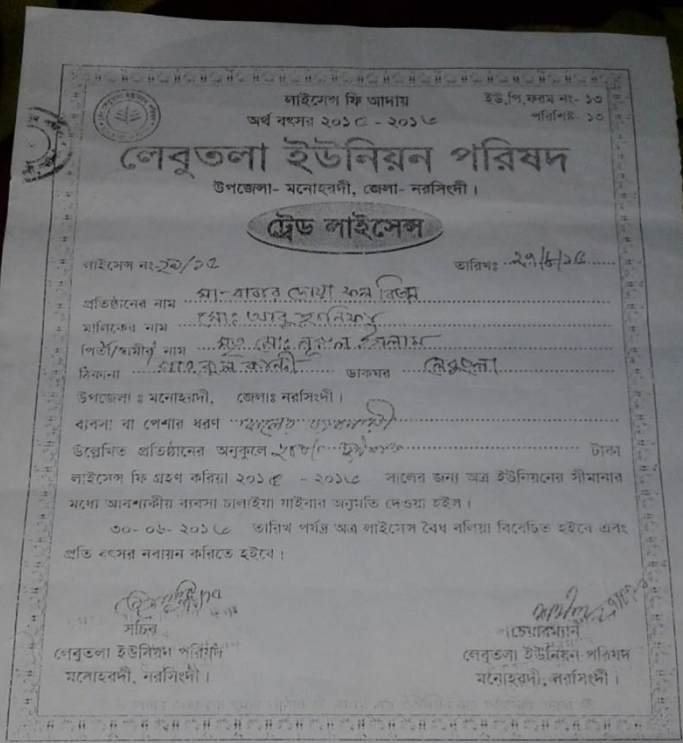 লাইসেন্স ফি আদায়
ইউ.পি.ফরম নং- ১৩
অর্থ বৎসর ২০১৫ - ২০১৬
পরিশিষ্ট- ১৩
লেবুতলা ইউনিয়ন পরিষদ
উপজেলা- মনোহরদী, জেলা- নরসিংদী।
ট্রেড লাইসেন্স
লাইসেন্স নং-২৯/১৫
তারিখঃ ২৭/৮/১৫
প্রতিষ্ঠানের নাম মা-বাবার দোয়া
মালিকের নাম মোঃ আবু হানিফা
পিতা/স্বামীর নাম মৃত মোঃ নূরুল ইসলাম
ঠিকানা ডাকঘর লেবুতলা
উপজেলা ঃ মনোহরদী, জেলাঃ নরসিংদী।
ব্যবসা বা পেশার ধরণ
উল্লেখিত প্রতিষ্ঠানের অনুকুলে টাকা
লাইসেন্স ফি গ্রহণ করিয়া ২০১৫ - ২০১৬ সালের জন্য অত্র ইউনিয়নের সীমানার
মধ্যে আবশ্যকীয় ব্যবসা চালাইয়া যাইবার অনুমতি দেওয়া হইল।
৩০- ০৬- ২০১৬ তারিখ পর্যন্ত অত্র লাইসেন্স বৈধ বলিয়া বিবেচিত হইবে এবং
প্রতি বৎসর নবায়ন করিতে হইবে।
সচিব
চেয়ারম্যান
লেবুতলা ইউনিয়ন পরিষদ
লেবুতলা ইউনিয়ন পরিষদ
মনোহরদী, নরসিংদী।
মনোহরদী, নরসিংদী।